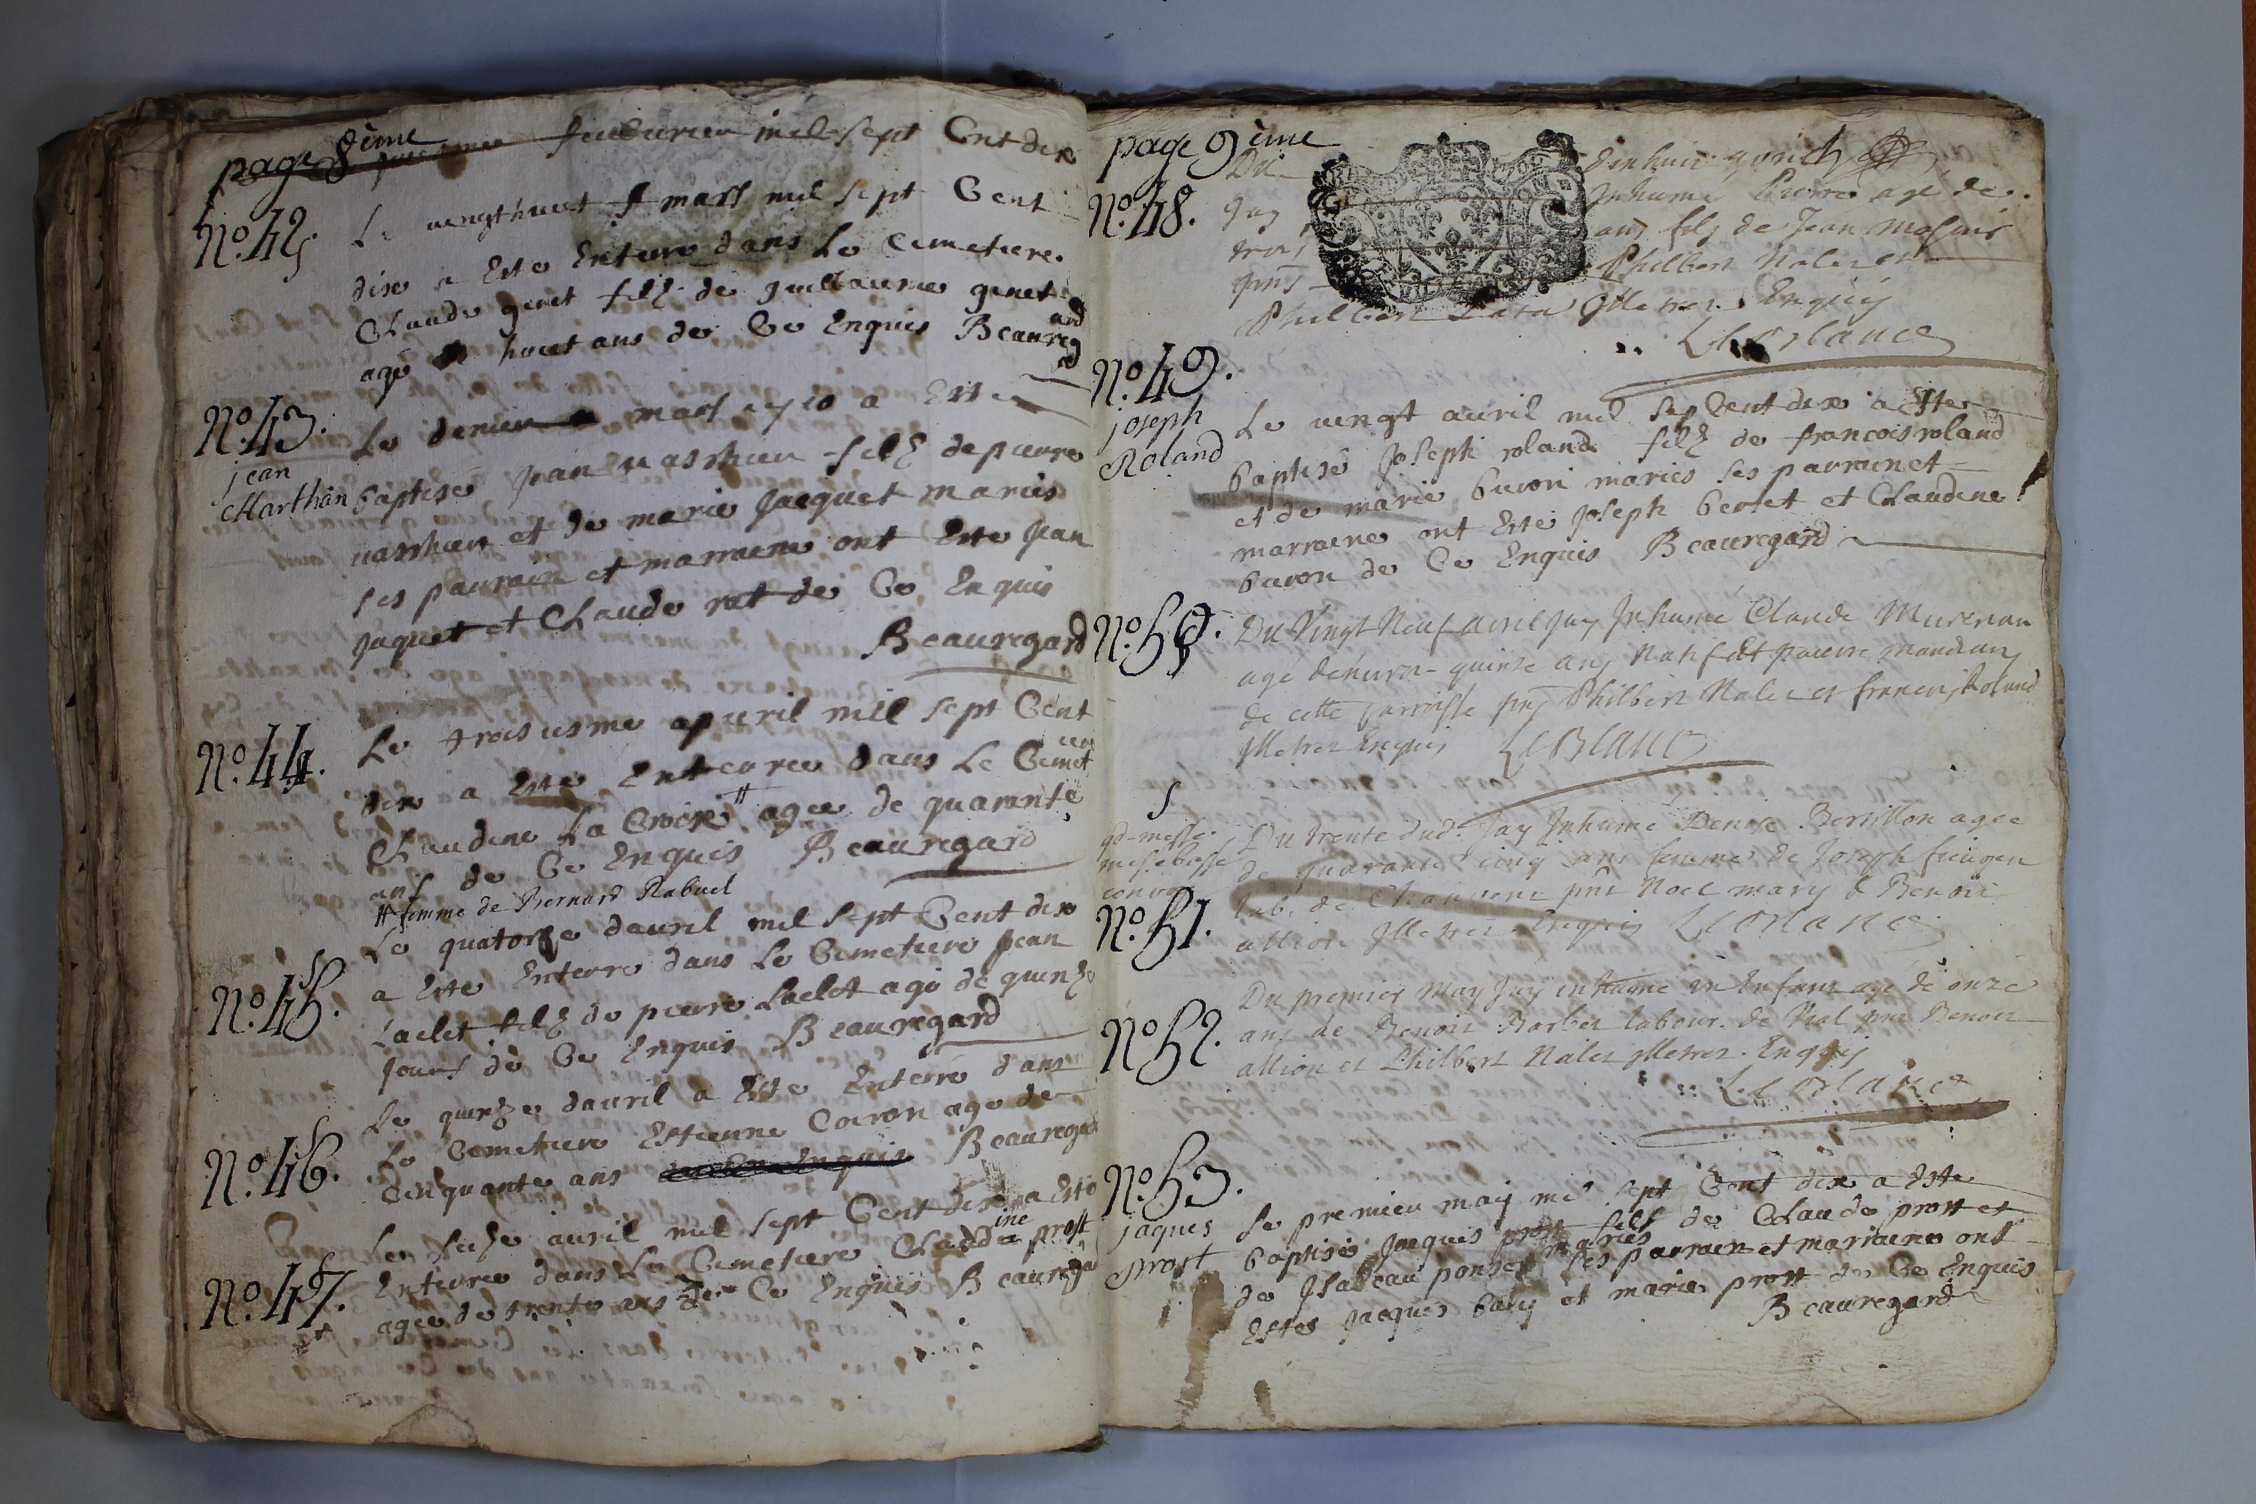 page 8ème
feuburier mil sept Cent dix
N.º 42.
Le vengthuet mars mil sept Cent
dix a Este Enterre dans Le Cemetiere
Claude genet filz de guillaume genet
age huet ans de Ce Enquis Beauregard
N.º 43.
jean
Marthan
Le denier mars 1710 a Este
baptise jean filz de pierre
et de marie jacquet maries
ses paurain et marraene ont Este jean
jaquet et Claude rat de Ce Enquis
Beauregard
N.º 44.
Le troisiesme apuril mil sept Cent
dix a Este Enterree dans Le Cemetiere
Claudine La Croix # agee de quarante
ans de Ce Enquis Beauregard
# femme de Bernard Rabuel
N.º 45.
Le quatorze dauril mil sept Cent dix
a Este Enterre dans Le Cemetiere jean
Laclet filz de pierre Laclet age de quinze
jours de Ce Enquis Beauregard
N.º 46.
Le quinze dauril a Este Enterré dans
Le Cemetiere Estienne Coiron age de
Cinquante ans Beauregard
N.º 47.
Le seize auril mil sept Cent dix a Este
Enterree dans Le Cemetiere Claudine prost
agee de trente ans de Ce Enquis Beauregard
page 9ème
Du dixhuit avril
N.º 48.
Jay Inhumé Pierre agé de
trois ans fils de Jean
pnts Philbert Nalet
Philbert Enquis
LeBlanc
N.º 49.
joseph
Roland
Le vengt auril mil sep Cent dix a Este
baptisé Joseph roland filz de francois roland
et de marie buron maries ses paurain et
marraine ont Esté Joseph bertet et Claudine
buron de Ce Enquis Beauregard
N.º 50.
Du Vingt Neuf avril Jay Inhumé Claude
agé denviron quinze ans Natif et pauvre mandiant
de cette parroisse pnts Philbert Nalet et francois Roland
Illetrez Enquis LeBlanc
gd-messe
messe basse
convoy
N.º 51.
Du trente dud. Jay Inhumé Denise Bertillon agée
de quarante cinq ans femme de Joseph
lab. de pnts Noel mary & Benoit
allion Illetrez Enquis LeBlanc
N.º 52.
Du premier May Jay inhumé un Enfant agé de onze
ans de Benoit Barbet labour. de Nal pnts Benoit
allion et Philbert Nalet Illetrez. Enquis
LeBlanc
N.º 53.
jaques
prost
Le premier maij mil sept Cent dix a Este
baptisé Jacques prost fils de Claude prost et
de Isabeau ponset maries Ses parrain et marraine ont
Estes Jacques baly et marie prost de Ce Enquis
Beauregard